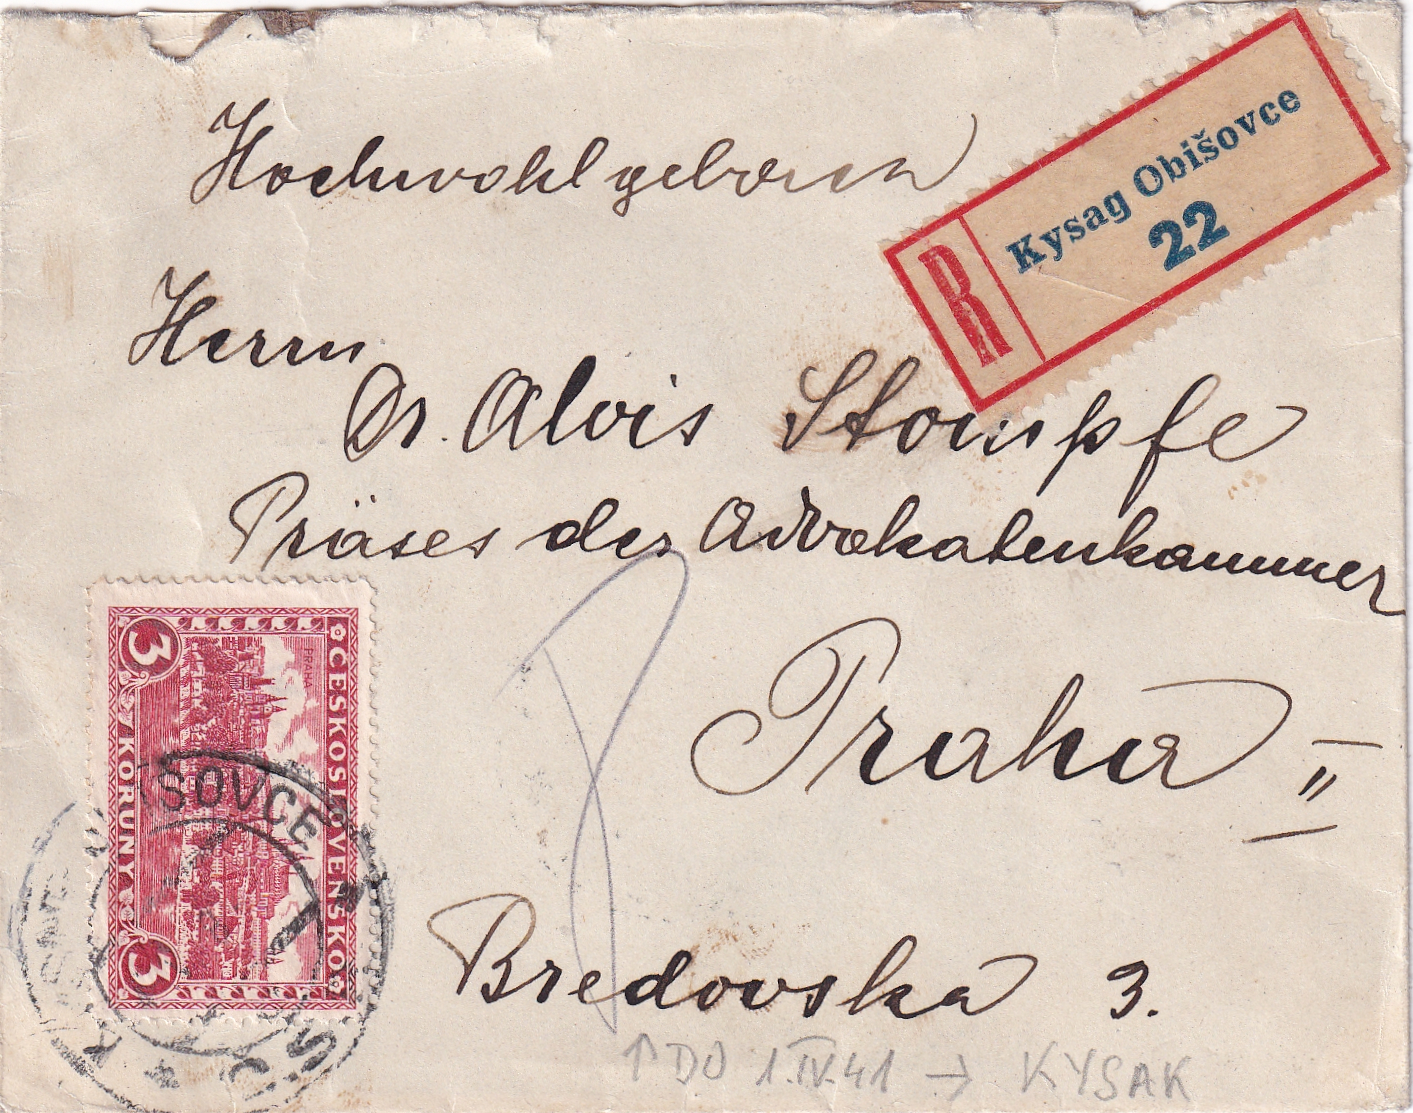 Hochwohlgeboren
R Kysag Obišovce
22
Herrn
Dr. Alois Stompfe
Präses der Advokatenkammer
Praha II
Bredovska 3.
3 KORUNY 3
PRAHA
ČESKOSLOVENSKO
IŠOVCE
K
Č.S.
↑ DO 1.IV.41 → KYSAK